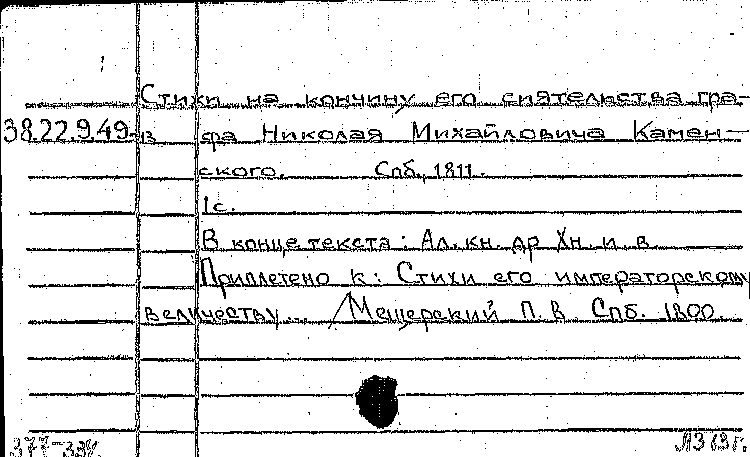 Стихи на кончину его сиятельства гра-
38.22.9.49-
фа Николая Михайловича Камен-
ского. Спб., 1811.
1с.
В конце текста: Ал. кн. др Хн. и. в
Приплетено к: Стихи его императорскому
величеству... /Мещерский П. В. Спб. 1800.